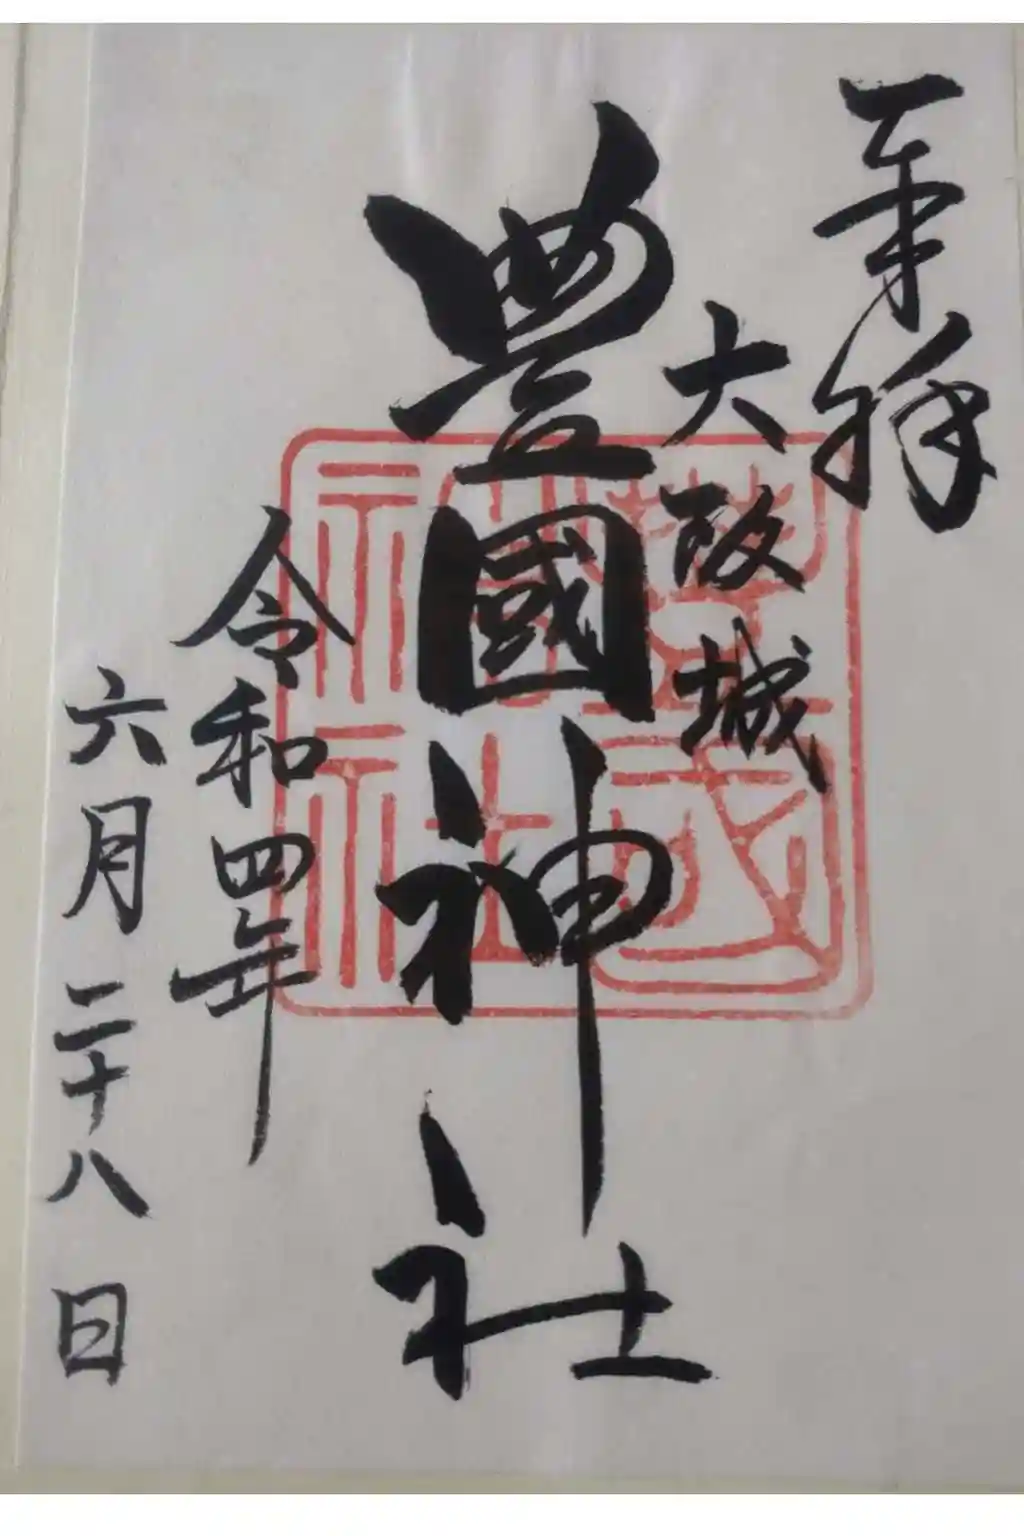 奉拝
大阪城
豊國神社
豊國神社
令和四年
六月二十八日